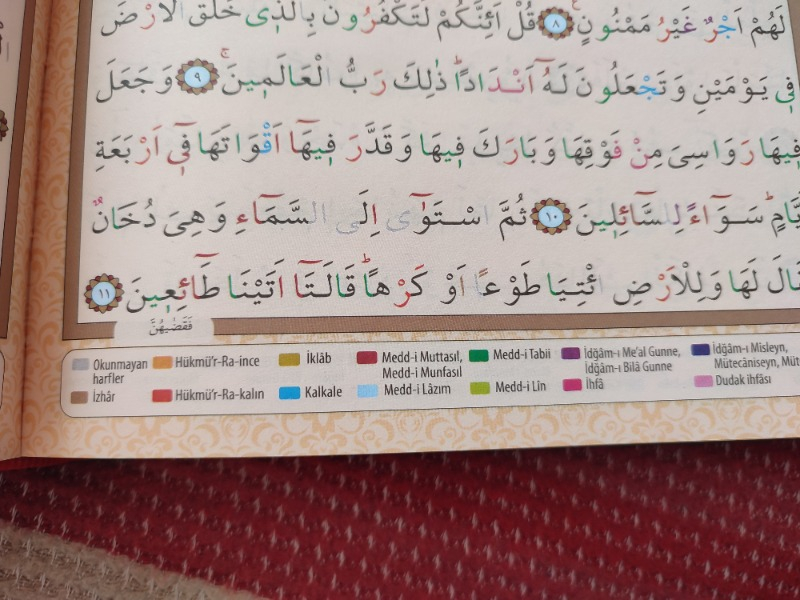 لَهُمْ اَجْرٌ غَيْرُ مَمْنُونٍ ﴿٨﴾ قُلْ اَئِنَّكُمْ لَتَكْفُرُونَ بِالَّذ۪ي خَلَقَ الْاَرْضَ
ف۪ي يَوْمَيْنِ وَتَجْعَلُونَ لَهُٓ اَنْدَاداًۜ ذٰلِكَ رَبُّ الْعَالَم۪ينَۚ ﴿٩﴾ وَجَعَلَ
ف۪يهَا رَوَاسِيَ مِنْ فَوْقِهَا وَبَارَكَ ف۪يهَا وَقَدَّرَ ف۪يهَٓا اَقْوَاتَهَا ف۪ٓي اَرْبَعَةِ
يَّامٍۜ سَوَٓاءً لِلسَّٓائِل۪ينَ ﴿١٠﴾ ثُمَّ اسْتَوٰٓى اِلَى السَّمَٓاءِ وَهِيَ دُخَانٌ
قَالَ لَهَا وَلِلْاَرْضِ ائْتِيَا طَوْعاً اَوْ كَرْهاًۜ قَالَتَٓا اَتَيْنَا طَٓائِع۪ينَ ﴿١١﴾
فَقَضٰيهُنَّ
Okunmayan harfler
Hükmü'r-Ra-ince
İklâb
Medd-i Muttasıl, Medd-i Munfasıl
Medd-i Tabiî
İdğâm-ı Me'al Gunne, İdğâm-ı Bilâ Gunne
İdğâm-ı Misleyn, Mütecâniseyn, Müt
İzhâr
Hükmü'r-Ra-kalın
Kalkale
Medd-i Lâzım
Medd-i Lîn
İhfâ
Dudak ihfâsı